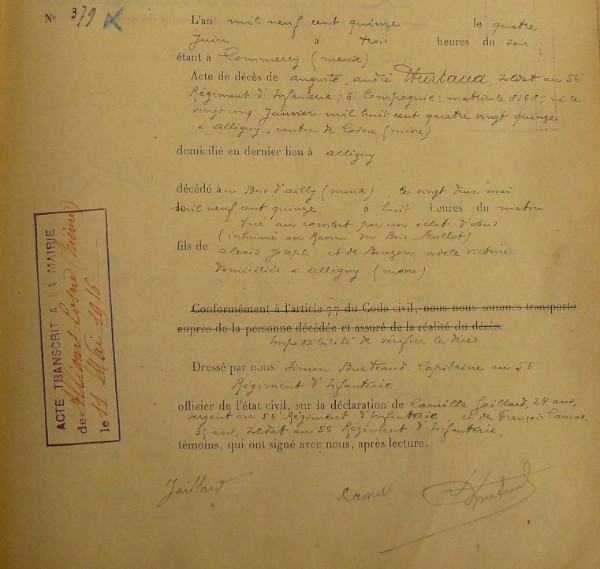 N° 379
L'an mil neuf cent quinze le quatre
Juin à trois heures du soir
étant à Commercy (meuse)
Acte de décès de auguste, andré Hurtaud, soldat au 56
Régiment d'Infanterie; 6e Compagnie; matricule 8168; né le
vingt cinq Janvier mil huit cent quatre vingt quinze
à alligny, canton de Cosne (nièvre)
domicilié en dernier lieu à alligny
décédé au Bois d'ailly (meuse), le vingt deux mai
mil neuf cent quinze à huit heures du matin
tué au combat par un éclat d'obus
(inhumé au Ravin du Bois Mullot)
fils de alexis Joseph et de Bougon, adèle victoire
domiciliés à alligny (nièvre)
Conformément à l'article 77 du Code civil, nous nous sommes transporté
auprès de la personne décédée et assuré de la réalité du décès.
impossibilité de vérifier le décès
Dressé par nous Simon Capitaine au 56
Régiment d'Infanterie
officier de l'état civil, sur la déclaration de Camille Gaillard, 24 ans,
sergent au 56 Régiment d'Infanterie et de François
35 ans, soldat au 56 Régiment d'Infanterie,
témoins, qui ont signé avec nous, après lecture.
Gaillard
ACTE TRANSCRIT A LA MAIRIE
de Alligny Cosne (Nièvre)
le 11 Mai 1916